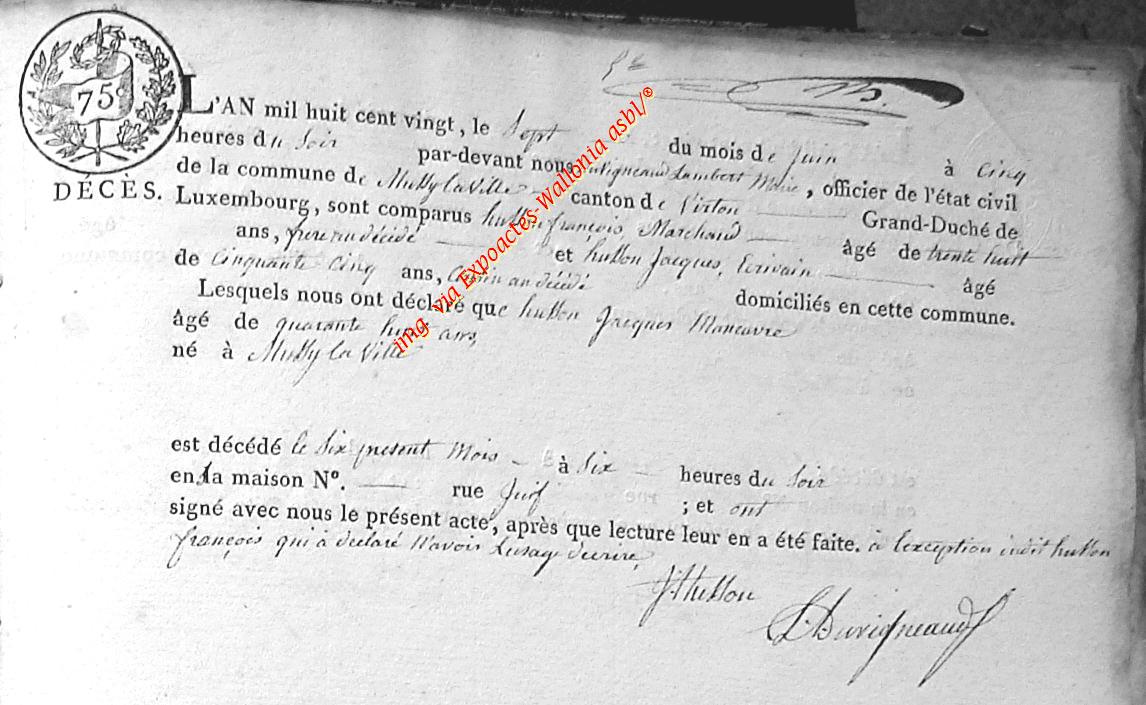 75
L'AN mil huit cent vingt, le Sept du mois de Juin à Cinq
heures du Soir par-devant nous Duvigneaud Lambert Maire, officier de l'état civil
de la commune de Mussy la Ville canton de Virton Grand-Duché de
DÉCÈS.
Luxembourg, sont comparus husson françois, Marchand âgé de trente huit
ans, frere au décédé et husson Jacques, Ecrivain âgé
de Cinquante Cinq ans, Cousin au décédé domiciliés en cette commune.
Lesquels nous ont déclaré que husson Jacques Manœuvre
âgé de quarante huit ans,
né à Mussy la Ville
est décédé le Six présent Mois à Six heures du Soir
en la maison N°. rue Juif ; et ont
signé avec nous le présent acte, après que lecture leur en a été faite. à l'exception dudit husson
françois qui à déclaré n'avoir l'usage d'ecrire,
J. Husson
L. Duvigneaud
img via Expoactes-Wallonia asbl/®